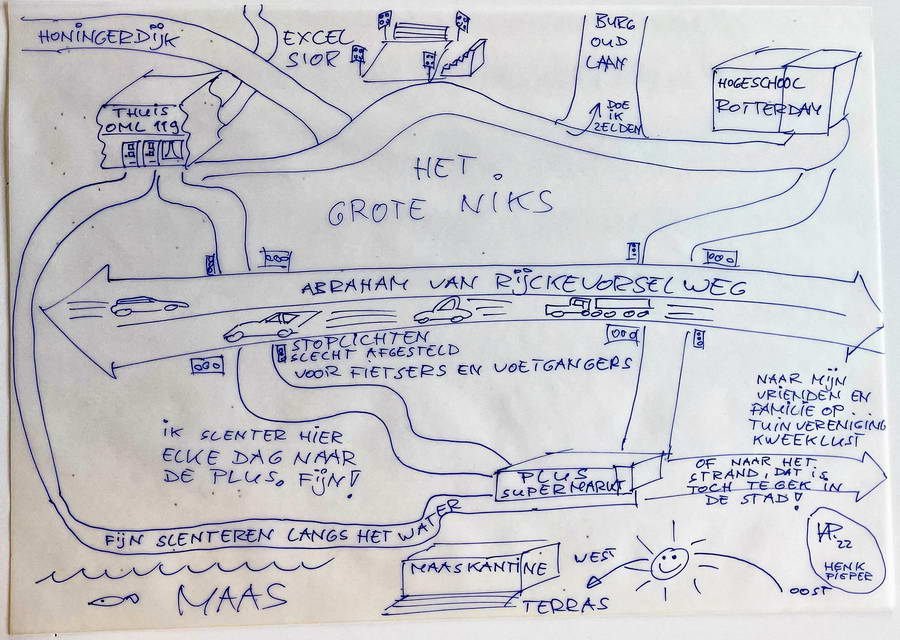 HONINGERDIJK
EXCEL
SIOR
BURG
OUD
LAAN
DOE
IK
ZELDEN
HOGESCHOOL
ROTTERDAM
THUIS
OML 119
HET
GROTE NIKS
ABRAHAM VAN RIJCKEVORSELWEG
STOPLICHTEN
SLECHT AFGESTELD
VOOR FIETSERS EN VOETGANGERS
NAAR MIJN
VRIENDEN EN
FAMILIE OP..
TUINVERENIGING
KWEEKLUST
IK SLENTER HIER
ELKE DAG NAAR
DE PLUS. FIJN!
PLUS
SUPERMARKT
OF NAAR HET
STRAND, DAT IS
TOCH TE GEK IN
DE STAD!
FIJN SLENTEREN LANGS HET WATER
MAASKANTINE
WEST
TERRAS
OOST
MAAS
HP.
22
HENK
PIEPER